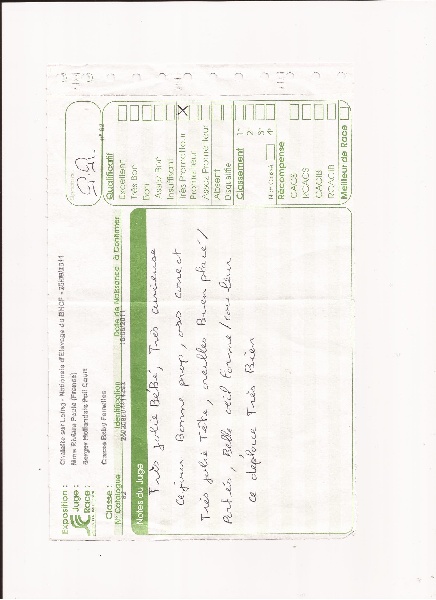 Exposition :
Chalette sur Loing - Nationale d'Elevage du BHCF - 25/09/2011
Juge :
Mme Rivière Paola (France)
Race :
Berger Hollandais Poil Court
Classe :
Classe Bébé Femelles
N° Catalogue
Identification
Date de Naissance à Confirmer
Notes du Juge
Très jolie Bébé, Très curieuse
Bonne prop, oss correct
Très jolie Tête, oreilles Bien placé/
Portées, Belle œil forme/couleur
ce déplace Très Bien
Qualificatif
Excellent
Très Bon
Bon
Assez Bon
Insuffisant
Très Prometteur X
Prometteur
Assez Prometteur
Absent
Disqualifié
Classement
1er
2e
3e
4e
Non Classé
Récompense
CACS
RCACS
CACIB
RCACIB
Meilleur de Race